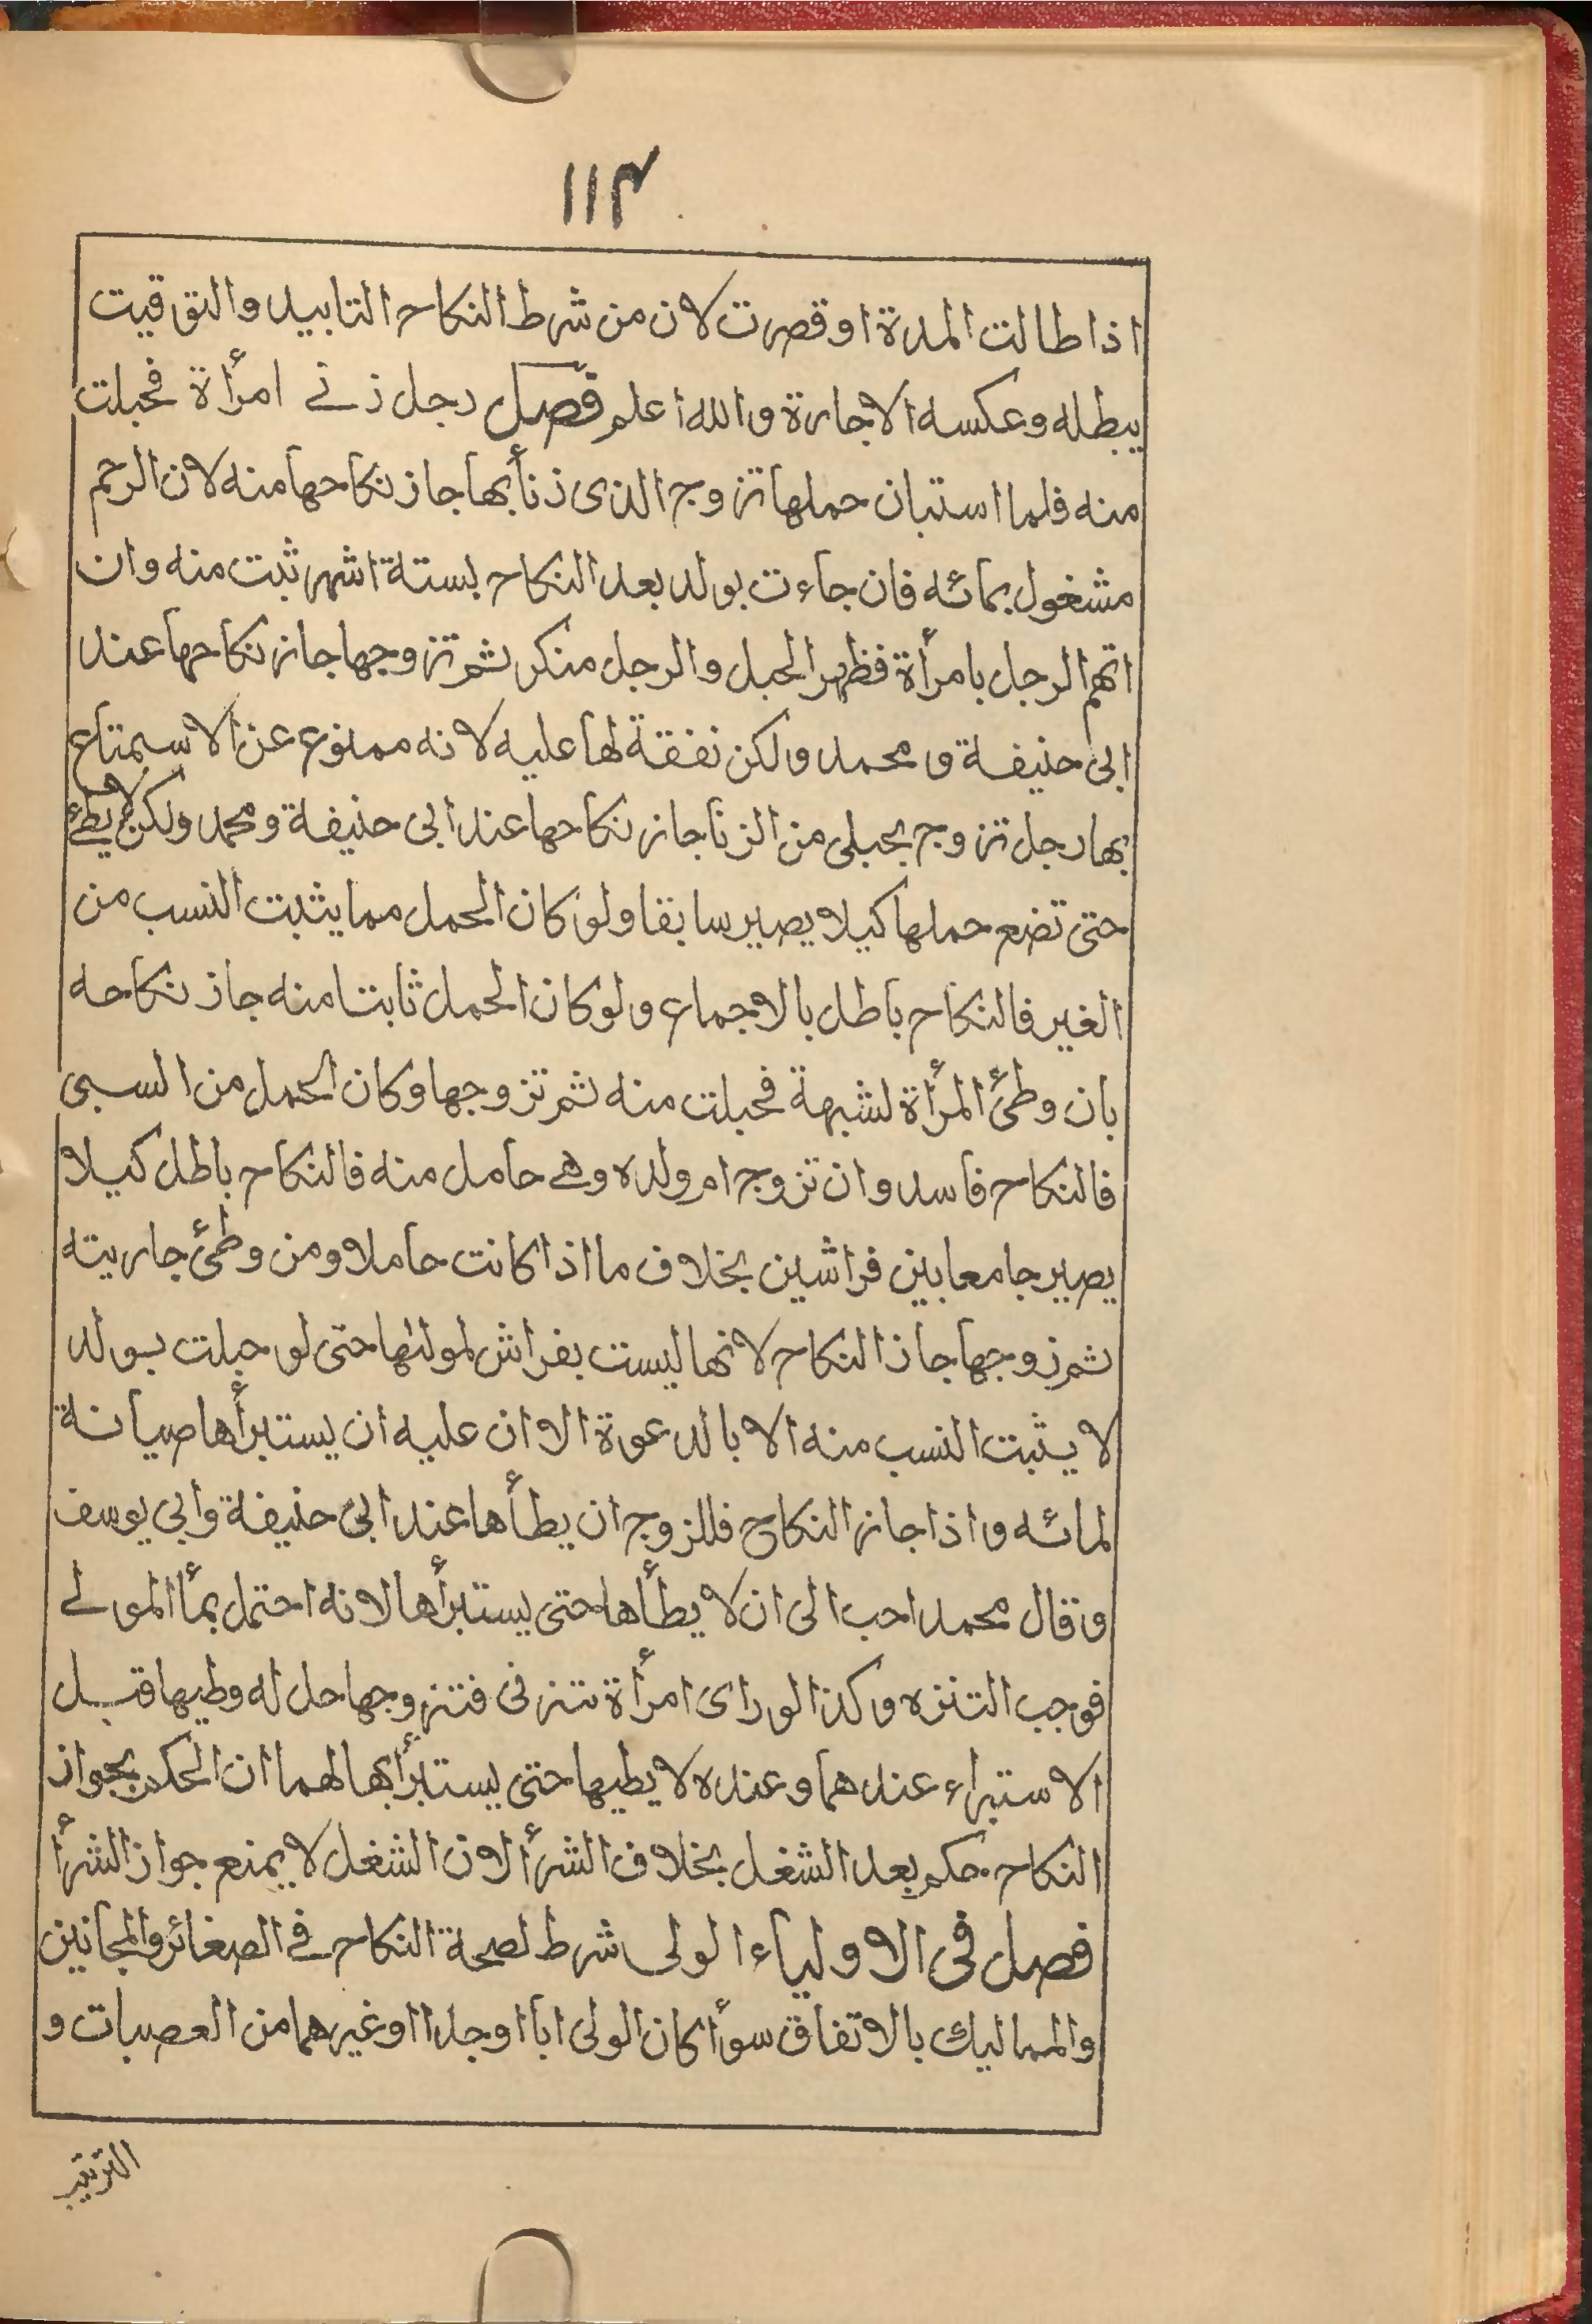 ١١٣
اذا طالت المدة او قصرت لان من شرط النكاح التابيد والتوقيت
يبطله وعكسه الاجارة والله اعلم فصل رجل زنے امرأة فحبلت
منه فلما استبان حملها تزوج الذى زنأ بها جاز نكاحها منه لان الرحم
مشغول بمائه فان جاءت بولد بعد النكاح بستة اشهر ثبت منه وان
اتهم الرجل بامرأة فظهر الحبل والرجل منكر ثم تزوجها جاز نكاحها عند
ابى حنيفة ومحمد ولكن نفقة لها عليه لانه ممنوع عن الاستمتاع
بها رجل تزوج بحبلى من الزنا جاز نكاحها عند ابى حنيفة ومحمد ولكن لا يطئ
حتى تضع حملها كيلا يصير سابقا ولو كان الحمل مما يثبت النسب من
الغير فالنكاح باطل بالاجماع ولو كان الحمل ثابتا منه جاز نكاحه
بان وطئ المرأة لشبهة فحبلت منه ثم تزوجها وكان الحمل من السبى
فالنكاح فاسد وان تزوج ام ولده وهے حامل منه فالنكاح باطل كيلا
يصير جامعا بين فراشين بخلاف ما اذا كانت حاملا ومن وطئ جاريته
ثم زوجها جاز النكاح لانها ليست بفراش لمولٰها حتى لو حبلت بولد
لا يثبت النسب منه الا بالدعوة الا ان عليه ان يستبرأها صيانة
لمائه واذا جاز النكاح فللزوج ان يطأها عند ابى حنيفة وابي يوسف
وقال محمد احب الى ان لا يطأها حتى يستبرأها لانه احتمل بمأ المولے
فوجب التنزه وكذا لو راى امرأة تزنى فتزوجها حل له وطيها قبل
الاستبراء عندهما وعنده لا يطيها حتى يستبرأ بها لهما ان الحكم بجواز
النكاح حكم بعد الشغل بخلاف الشرأ لان الشغل لا يمنع جواز الشرأ
فصل فى الاولياء الولى شرط لصحة النكاح فے الصغائر والمجانين
والمماليك بالاتفاق سوأ كان الولى ابا او جدا او غيرهما من العصبات و
الترتيب